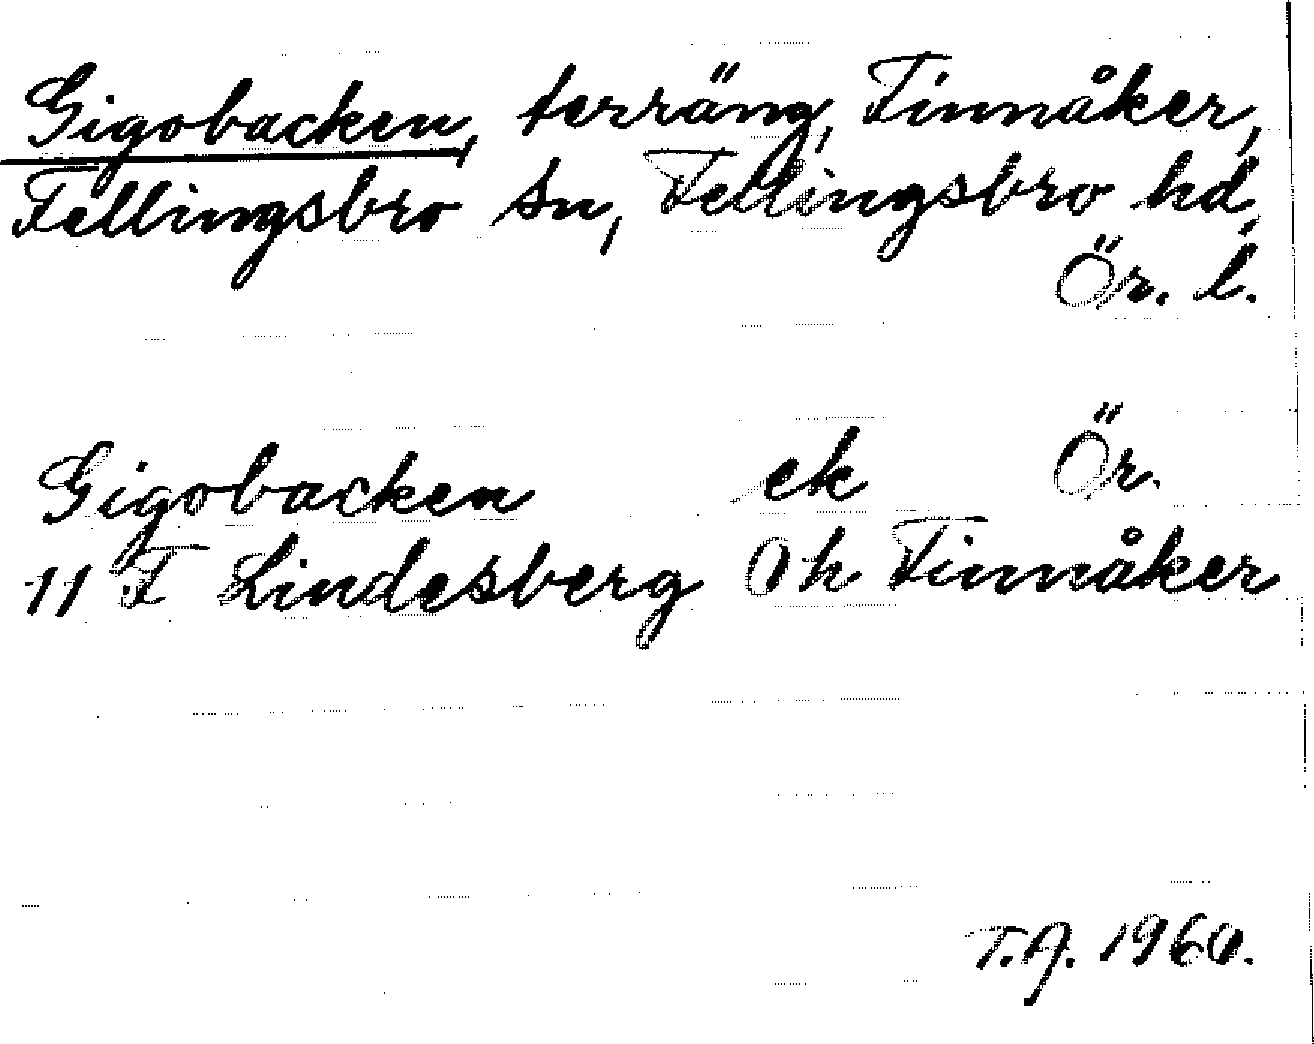 Gigobacken, terräng, Finnåker,
Fellingsbro sn, Fellingsbro hd,
Ör. l.
Gigobacken ek Ör.
11 F Lindesberg 0 h Finnåker
T.A. 1960.